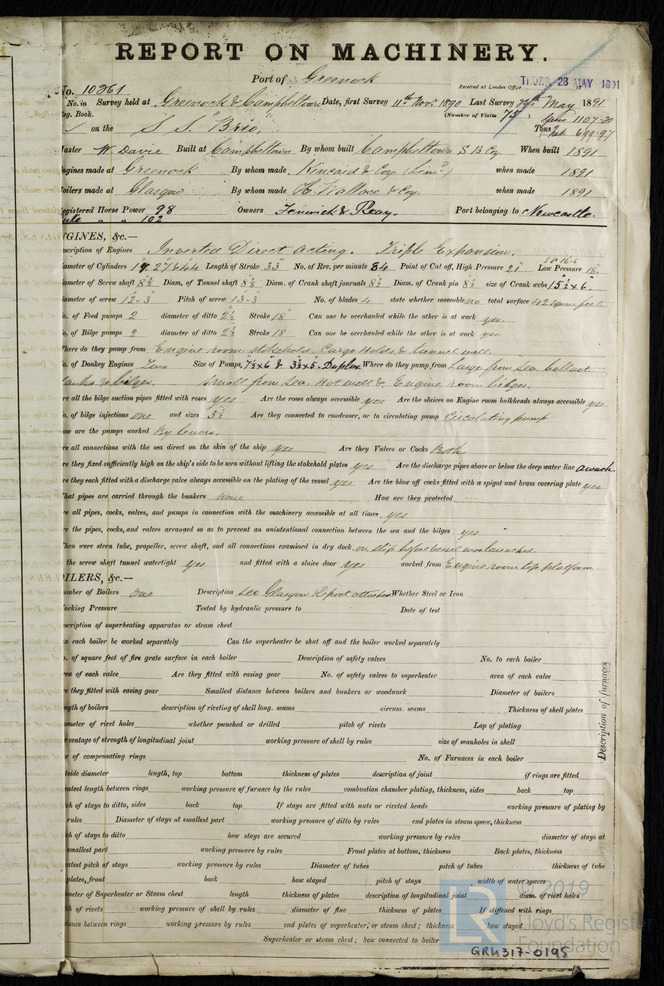 REPORT ON MACHINERY.
Port of Greenock
No. 10361 Received at London Office THURS. 28 MAY 1891
No. in Survey held at Greenock & Campbeltown Date, first Survey 11th Nov. 1890 Last Survey 26th May 1891
Reg. Book. (Number of Visits 75)
on the S.S. "Brio" Tons Gross 1107.20 Net 699.97
Master W. Davie Built at Campbeltown By whom built Campbeltown S B Coy When built 1891
Engines made at Greenock By whom made Kincaid & Coy (Limd) when made 1891
Boilers made at Glasgow By whom made H. Wallace & Coy. when made 1891
Registered Horse Power 98 Owners Fenwick & Reay. Port belonging to Newcastle.
102
ENGINES, &c.—
Description of Engines Inverted Direct Acting. Triple Expansion.
Diameter of Cylinders 17. 27 & 44 Length of Stroke 33" No. of Rev. per minute 84 Point of Cut off, High Pressure 21" Low Pressure 18"
Diameter of Screw shaft 8½ Diam. of Tunnel shaft 8¼ Diam. of Crank shaft journals 8½ Diam. of Crank pin 8½ size of Crank webs 15½ x 6.
Diameter of screw 12-3 Pitch of screw 13-3 No. of blades 4 state whether moveable no total surface 42 square feet
No. of Feed pumps 2 diameter of ditto 2½ Stroke 18" Can one be overhauled while the other is at work yes
No. of Bilge pumps 2 diameter of ditto 2½ Stroke 18 Can one be overhauled while the other is at work yes
Where do they pump from Engine room, stokehold, Cargo Holds & tunnel well.
No. of Donkey Engines Two Size of Pumps, 7½x6 & 3½x5. Duplex Where do they pump from Large from Sea, ballast
tanks & bilges. Small from Sea, Hot well & Engine room bilges.
Are all the bilge suction pipes fitted with roses yes Are the roses always accessible yes Are the sluices on Engine room bulkheads always accessible yes
No. of bilge injections one and sizes 3½ Are they connected to condenser, or to circulating pump Circulating pump
How are the pumps worked By levers.
Are all connections with the sea direct on the skin of the ship yes Are they Valves or Cocks Both
Are they fixed sufficiently high on the ship's side to be seen without lifting the stokehold plates yes Are the discharge pipes above or below the deep water line awash.
Are they each fitted with a discharge valve always accessible on the plating of the vessel yes Are the blow off cocks fitted with a spigot and brass covering plate yes
What pipes are carried through the bunkers none How are they protected
Are all pipes, cocks, valves, and pumps in connection with the machinery accessible at all times yes
Are the pipes, cocks, and valves arranged so as to prevent an unintentional connection between the sea and the bilges yes
When were stern tube, propeller, screw shaft, and all connections examined in dry dock on slip before vessel was launched.
Is the screw shaft tunnel watertight yes and fitted with a sluice door yes worked from Engine room top platform
BOILERS, &c.—
Number of Boilers One Description See Glasgow Report attached Whether Steel or Iron
Working Pressure Tested by hydraulic pressure to Date of test
Description of superheating apparatus or steam chest
Can each boiler be worked separately Can the superheater be shut off and the boiler worked separately
No. of square feet of fire grate surface in each boiler Description of safety valves No. to each boiler
Area of each valve Are they fitted with easing gear No. of safety valves to superheater area of each valve
Are they fitted with easing gear Smallest distance between boilers and bunkers or woodwork Diameter of boilers
Length of boilers description of riveting of shell long. seams circum. seams Thickness of shell plates
Diameter of rivet holes whether punched or drilled pitch of rivets Lap of plating
Percentage of strength of longitudinal joint working pressure of shell by rules size of manholes in shell
Size of compensating rings No. of Furnaces in each boiler
Description of furnaces
Outside diameter length, top bottom thickness of plates description of joint if rings are fitted
Greatest length between rings working pressure of furnace by the rules combustion chamber plating, thickness, sides back top
Pitch of stays to ditto, sides back top If stays are fitted with nuts or riveted heads working pressure of plating by
rules Diameter of stays at smallest part working pressure of ditto by rules end plates in steam space, thickness
Pitch of stays to ditto how stays are secured working pressure by rules diameter of stays at
smallest part working pressure by rules Front plates at bottom, thickness Back plates, thickness
Greatest pitch of stays working pressure by rules Diameter of tubes pitch of tubes thickness of tube
plates, front back how stayed pitch of stays width of water spaces
Diameter of Superheater or Steam chest length thickness of plates description of longitudinal joint diam. of rivet holes
Pitch of rivets working pressure of shell by rules diameter of flue thickness of plates If stiffened with rings
Distance between rings working pressure by rules end plates of superheater, or steam chest; thickness how stayed
Superheater or steam chest; how connected to boiler
© 2019
Lloyd's Register
Foundation
LR
GRK317-0195